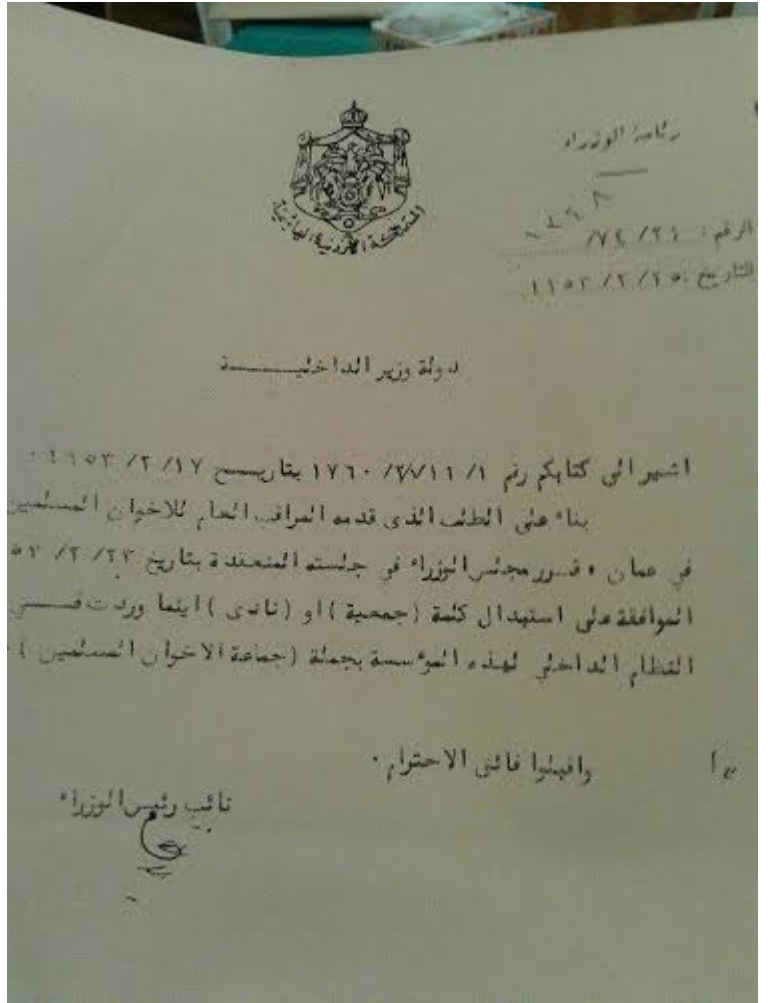 المملكة الأردنية الهاشمية
رئاسة الوزراء
الرقم :
التاريخ : ٢٥/ ٢/ ١٩٥٣
دولة وزير الداخليـــــــة
اشير الى كتابكم رقم بتاريــخ ١٧/ ٢/ ١٩٥٣ ·
بناء على الطلب الذى قدمه المراقب العام للاخوان المسلمين
في عمان ، قــرر مجلس الوزراء في جلسته المنعقدة بتاريخ ٢٣/ ٢/ ٥٣
الموافقة على استبدال كلمة (جمعية ) او ( نادى ) اينما وردت فــــي
النظام الداخلي لهذه المؤسسة بجملة (جماعة الاخوان المسلمين ) ·
واقبلوا فائق الاحترام ·
نائب رئيس الوزراء